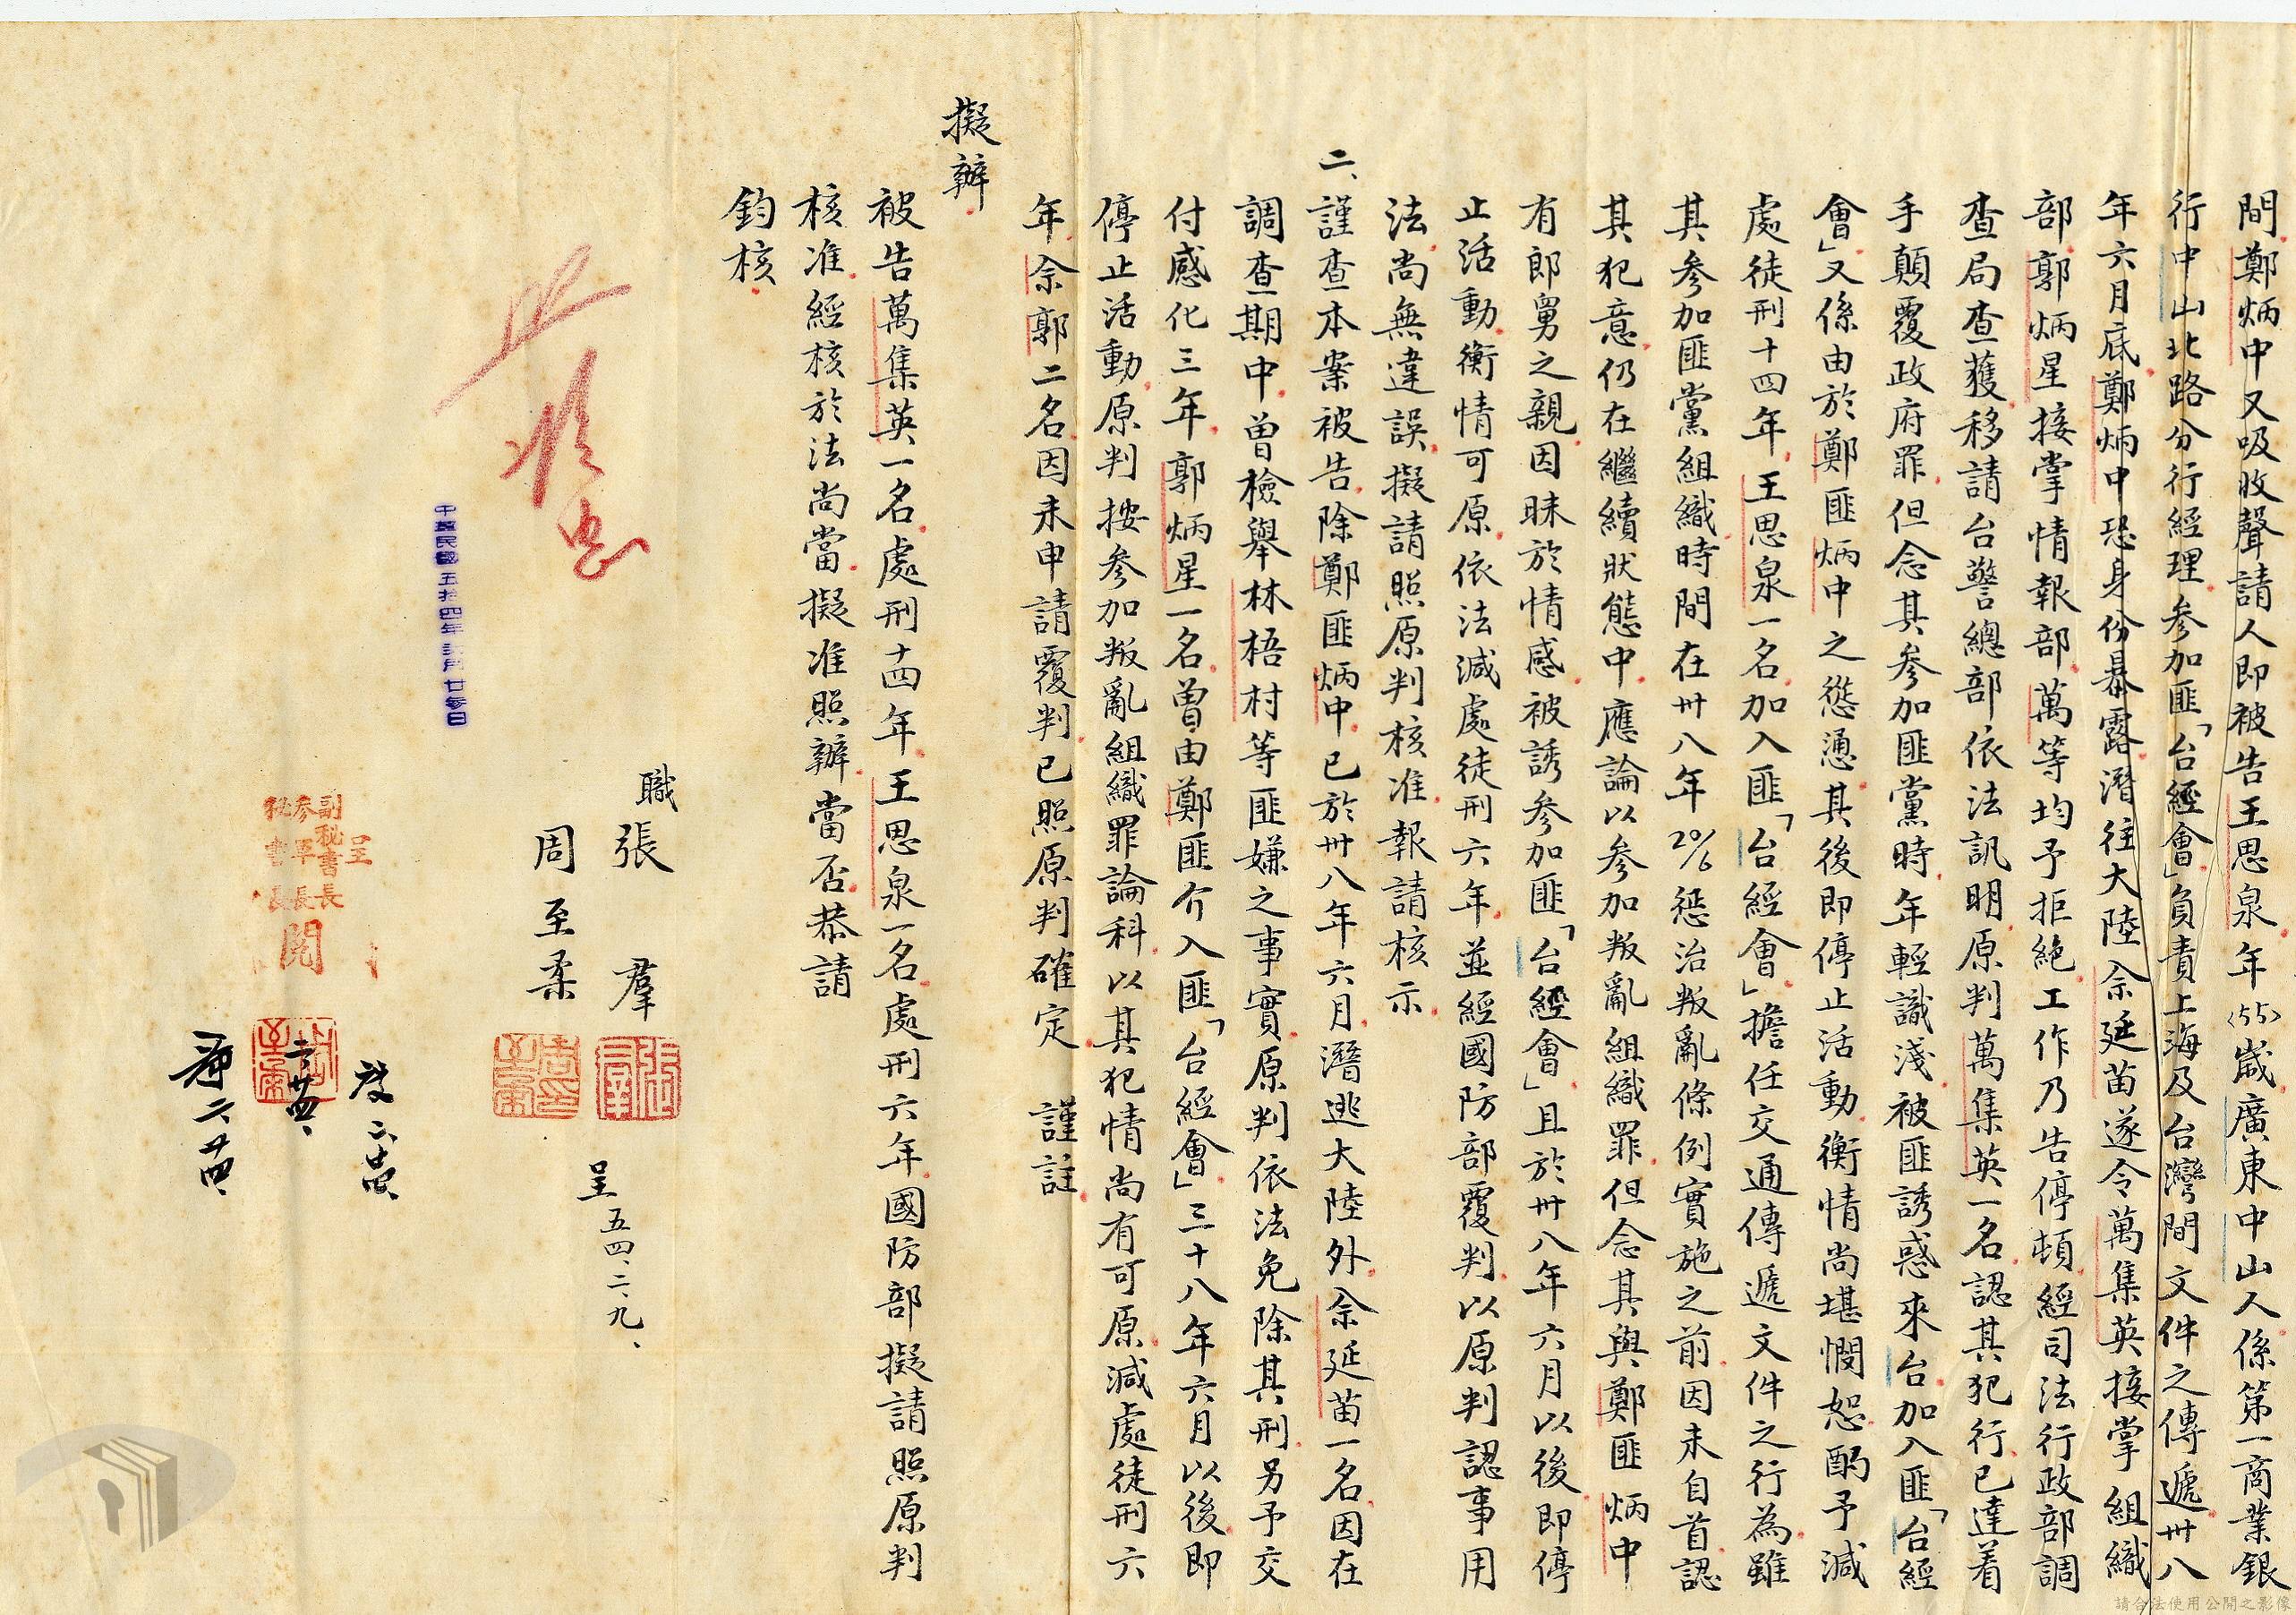 間鄭炳中又吸收聲請人即被告王思泉年〈55〉歲廣東中山人係第一商業銀
行中山北路分行經理參加匪「台經會」負責上海及台灣間文件之傳遞卅八
年六月底鄭炳中恐身份暴露潛往大陸佘延苗遂令萬集英接掌組織
部郭炳星接掌情報部萬等均予拒絕工作乃告停頓經司法行政部調
查局查獲移請台警總部依法訊明原判萬集英一名認其犯行已達着
手顛覆政府罪但念其參加匪黨時年輕識淺被匪誘惑來台加入匪「台經
會」又係由於鄭匪炳中之慫恿其後即停止活動衡情尚堪憫恕酌予減
處徒刑十四年王思泉一名加入匪「台經會」擔任交通傳遞文件之行為雖
其參加匪黨組織時間在卅八年20/6懲治叛亂條例實施之前因未自首認
其犯意仍在繼續狀態中應論以參加叛亂組織罪但念其與鄭匪炳中
有郎舅之親因昧於情感被誘參加匪「台經會」且於卅八年六月以後即停
止活動衡情可原依法減處徒刑六年並經國防部覆判以原判認事用
法尚無違誤擬請照原判核准報請核示
二、謹查本案被告除鄭匪炳中已於卅八年六月潛逃大陸外佘延苗一名因在
調查期中曾檢舉林梧村等匪嫌之事實原判依法免除其刑另予交
付感化三年郭炳星一名曾由鄭匪介入匪「台經會」三十八年六月以後即
停止活動原判按參加叛亂組織罪論科以其犯情尚有可原減處徒刑六
年佘郭二名因未申請覆判已照原判確定 謹註
擬辦
被告萬集英一名處刑十四年王思泉一名處刑六年國防部擬請照原判
核准經核於法尚當擬准照辦當否恭請
鈞核
職張 羣
周至柔
呈 五四、二、九、
中華民國五拾四年 月廿 日
呈
副秘書長
參軍長
秘書長
閱
請合法使用公開之影像